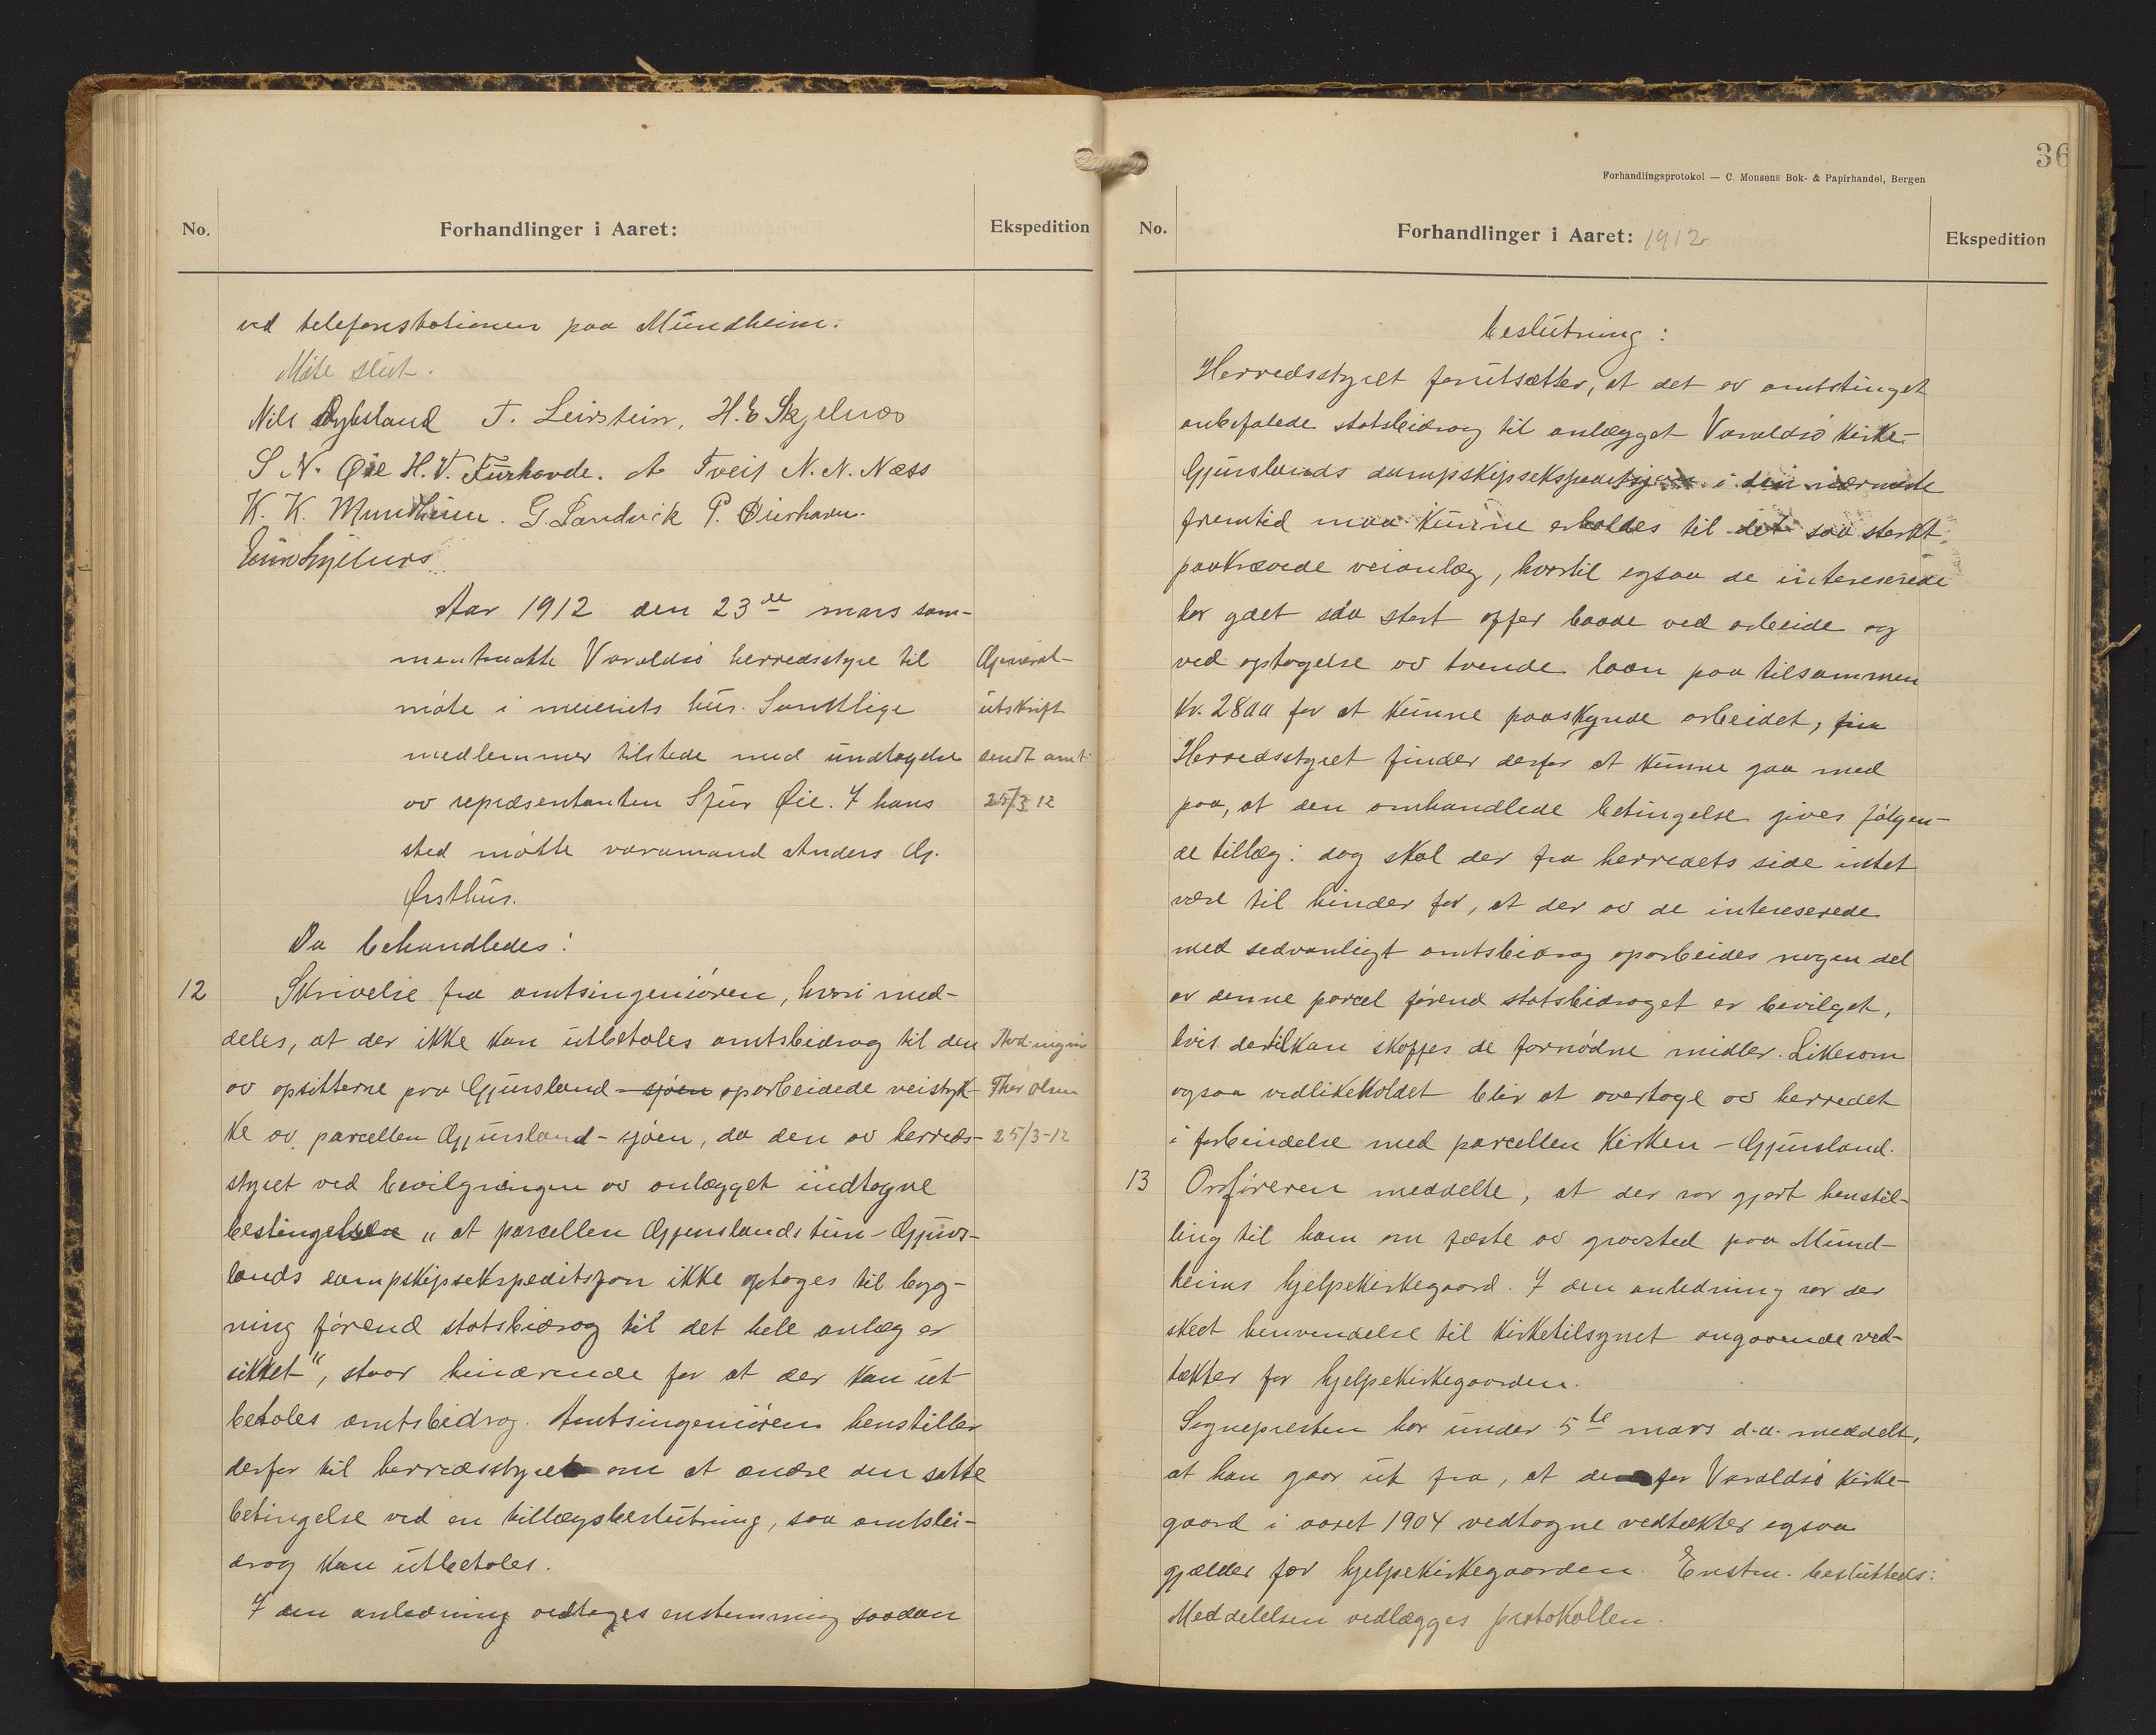 No.
Forhandlinger i Aaret:
Ekspedition
ved telefonstationen paa Mundheim.
Møte slut.
Nils Dybsland T. Leirstein, H. E Skjelnæs
S N. Øie H. V. Furhovde. A Tveit N. N. Næss
K. K. Mundheim. G. Sandvik P.
Aar 1912 den 23de mars sam-
mentraatte Varaldsø herredsstyre til
møte i meieriets hus. Samtlige
medlemmer tilstede med undtagelse
av repræsentanten Sjur Øie. I hans
sted møtte varamand Anders G.
Ørsthus.
General-
utskrift
sendt amt
25/3 12
Da behandledes:
12
Skrivelse fra amtsingeniøren, hvori med-
deles, at der ikke kan utbetales amtsbidrag til den
av opsitterne paa Gjuvsland - sjøen oparbeidede veistyk-
ke av parcellen Gjuvsland - sjøen, da den av herreds-
styret ved bevilgningen av anlægget indtagne
bestingelse „at parcellen Gjuvslands tun - Gjuvs-
lands dampskipsekspeditsjon ikke optages til byg-
ning førend statsbidrag til det hele anlæg er
sikket", staar hindrende for at der kan ut
betales amtsbidrag. Amtsingeniøren henstiller
derfor til herredsstyret om at ændre den satte
betingelse ved en tillægsbeslutning, saa amtsbi-
drag kan utbetales.
I den anledning vedtages enstemmig saadan
Thor Olsen
25/3-12
36
Forhandlingsprotokol — C. Monsens Bok- & Papirhandel, Bergen
No.
Forhandlinger i Aaret: 1912
Ekspedition
beslutning:
Herredsstyret forutsætter, at det av amtstinget
anbefalede statsbidrag til anlægget Varaldsø kirke-
Gjuvslands dampskipsekspeditsjon i den nærmeste
fremtid maa kunne erholdes til det saa sterkt
paakrævede veianlæg, hvortil ogsaa de intereserede
har gaet saa stort offer baade ved arbeide og
ved optagelse av tvende laan paa tilsammen
kr. 2800 for at kunne paaskynde arbeidet,
Herredsstyret finder derfor at kunne gaa med
paa, at den omhandlede betingelse gives følgen-
de tillæg: dog skal der fra herredets side intet
være til hinder for, at der av de intereserede
med sedvanligt amtsbidrag oparbeides nogen del
av denne parcel førend statsbidraget er bevilget,
hvis dertil kan skaffes de fornødne midler. Likesom
ogsaa vedlikeholdet blir at overtage av herredet
i forbindelse med parcellen Kirken - Gjuvsland.
13
Ordføreren meddelte, at der var gjort henstil-
ling til ham om fæste av gravsted paa Mund-
heims hjelpekirkegaard. I den anledning var der
skeet henvendelse til kirketilsynet angaaende ved-
tækter for hjelpekirkegaarden.
Sognepresten har under 5te mars d.a. meddelt,
at han gaar ut fra, at de for Varaldsø kirke-
gaard i aaret 1904 vedtagne vedtækter ogsaa
gjælder for hjelpekirkegaarden. Enstem. besluttedes:
Meddelelsen vedlægges protokollen.